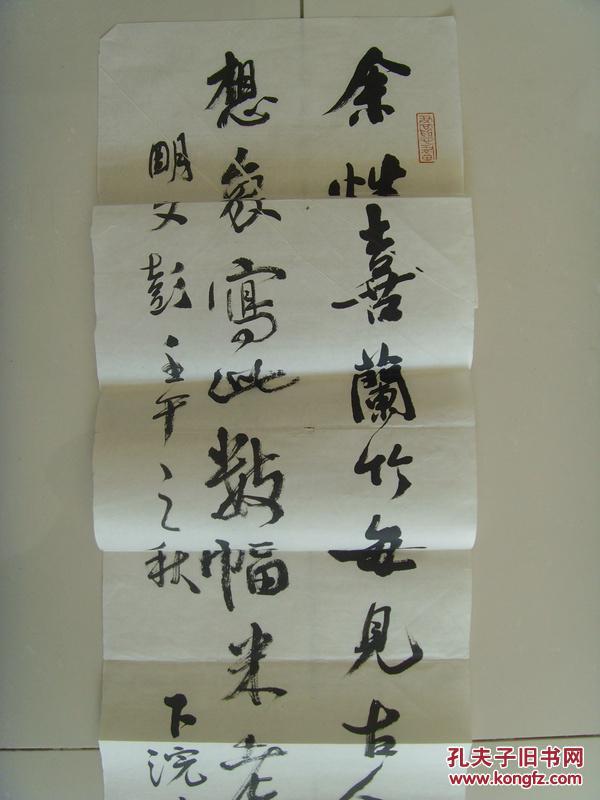 余性喜蘭竹每見古人
想象寫此數幅米老
明文彭 壬午之秋
下浣
孔夫子旧书网
www.kongfz.com